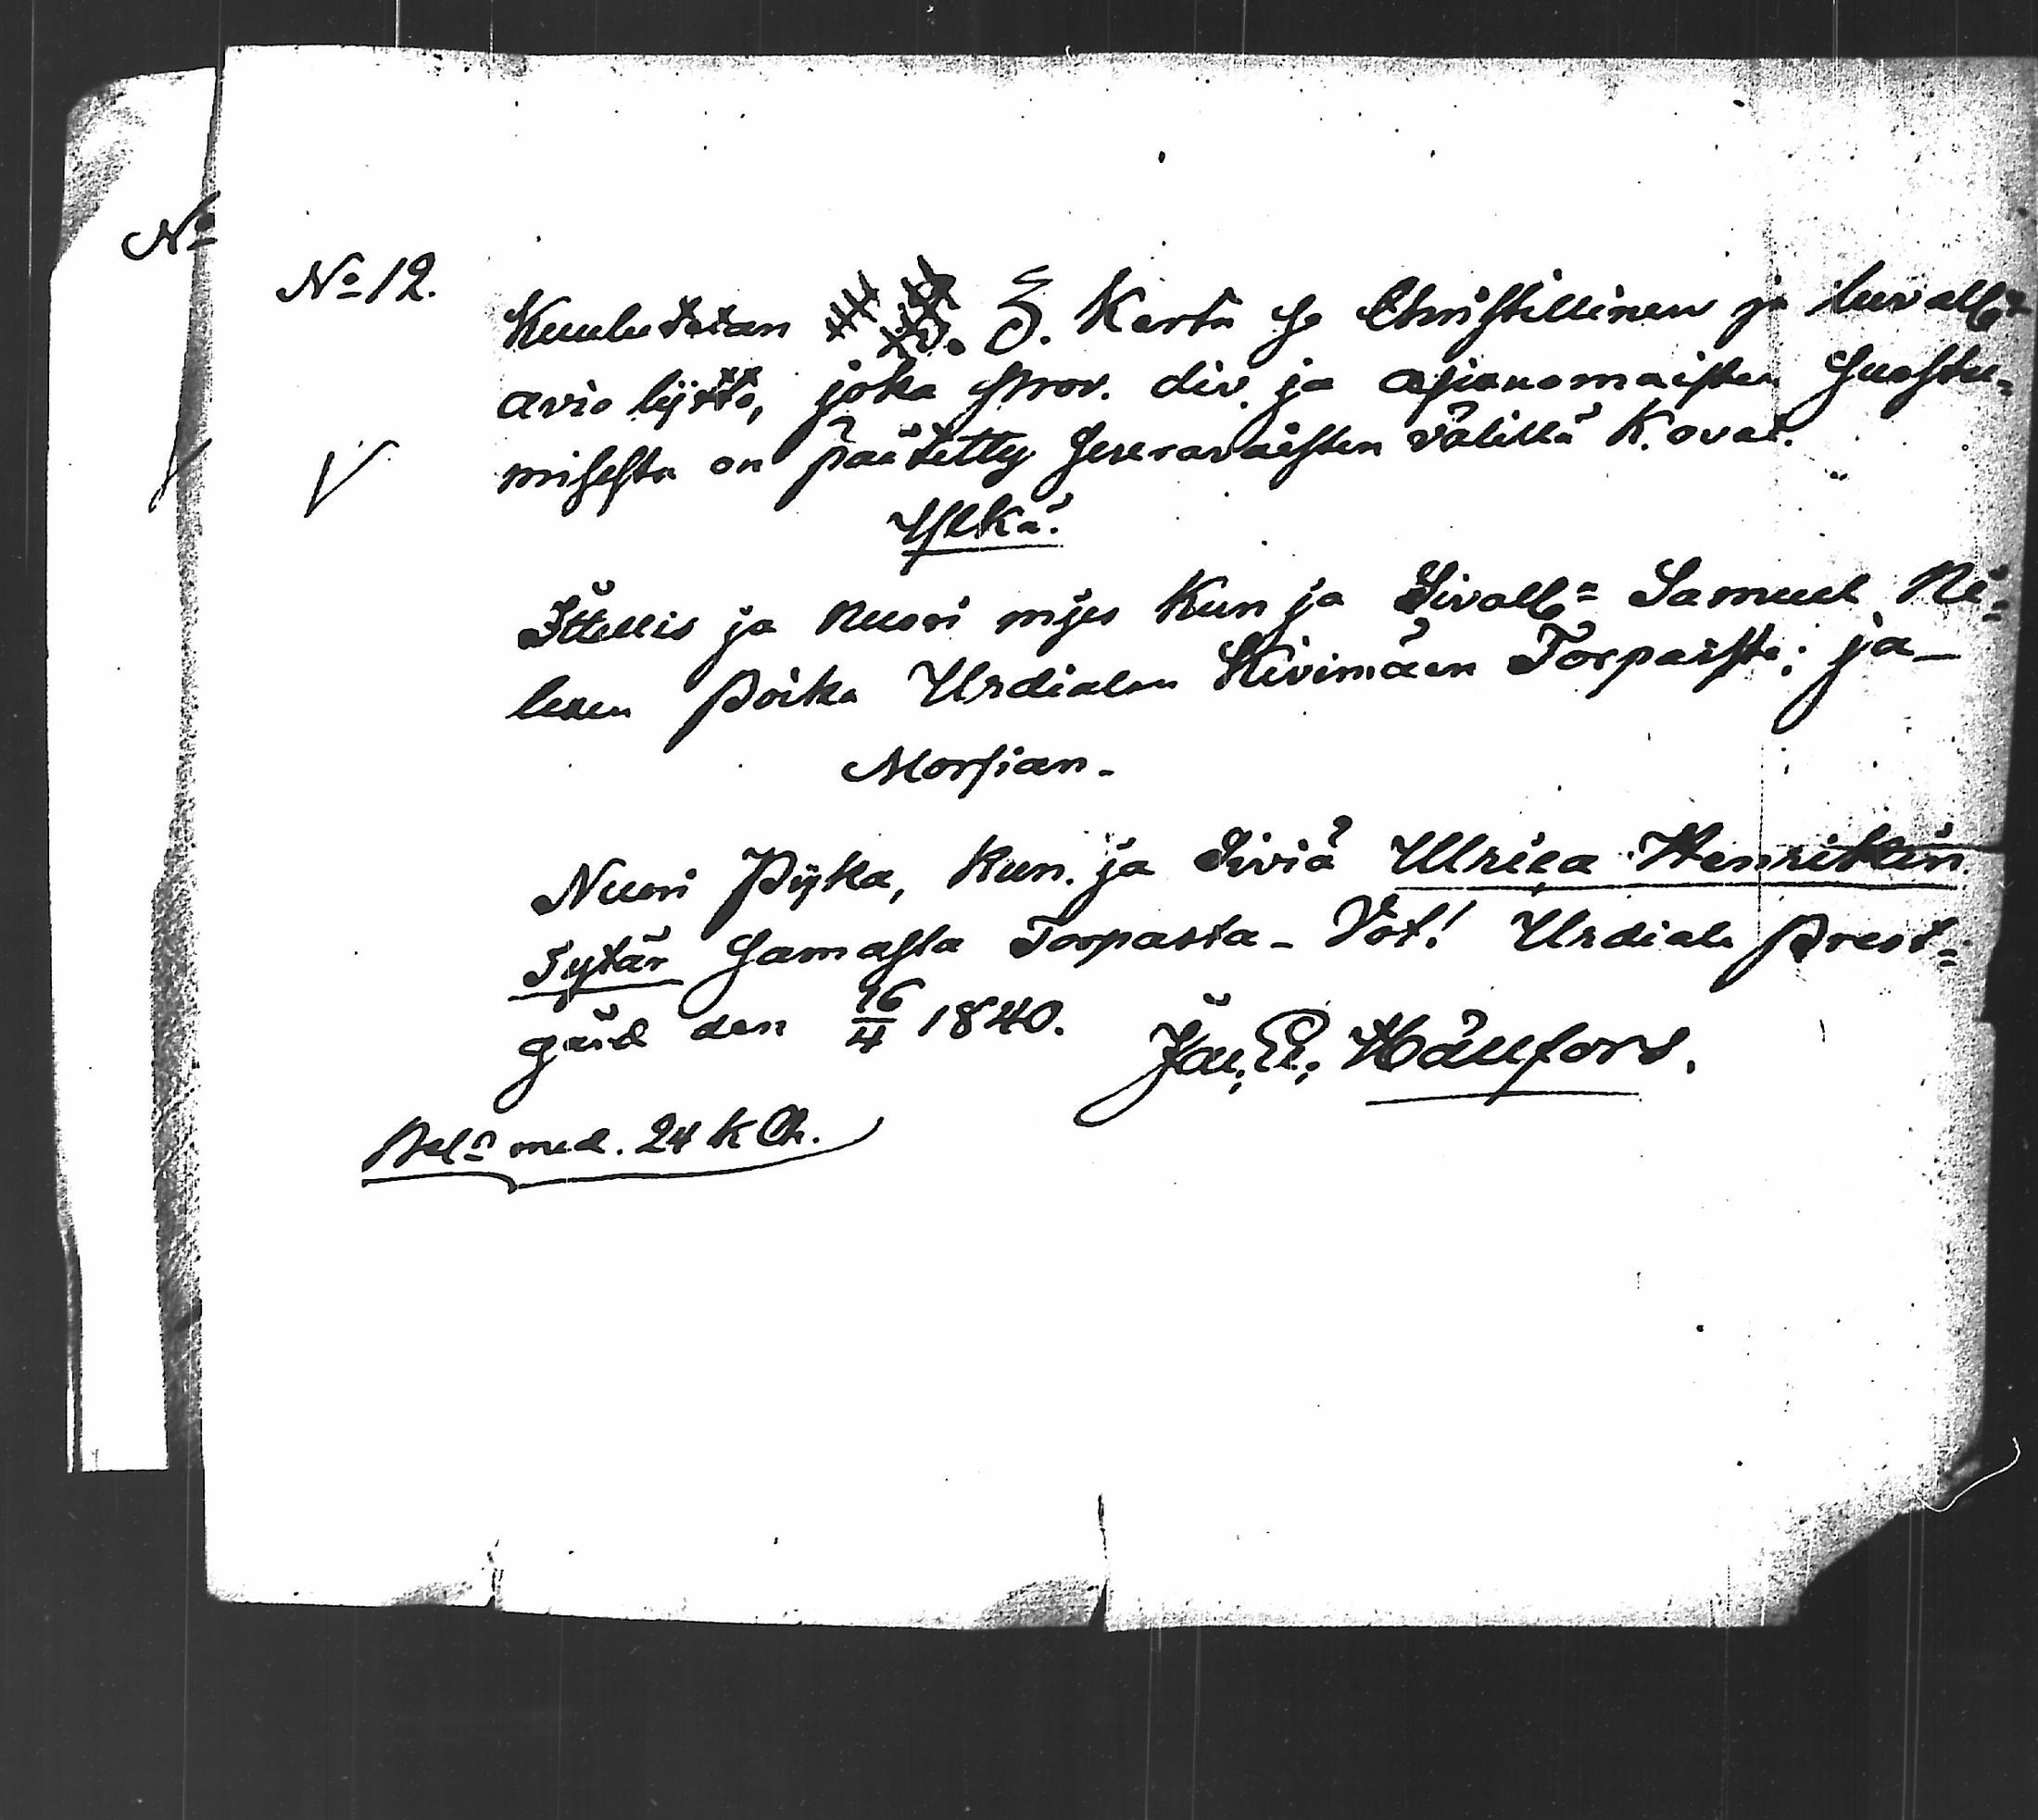 No
No 12.
Kuulutetan 3. Kerta se Christillinen ja luvall=
avio lijtto, joka prov. div. ja asianomaisten suostu=
misesta on päätetty seuravaisten välillä K. ovat.
Ylkä.
Ittellis ja nuori mijes Kun ja Sivall= Samuel Ni=
lsen poika Urdialan Kivimäen Torpasta; ja –
Morsian –
Nuori Pijka, Kun. ja Siviä Ulrica Henrikin
Tytär samasta Torpasta – Vot! Urdiala Prest=
gård den 16/4 1840.
Hällfors.
med. 24 K